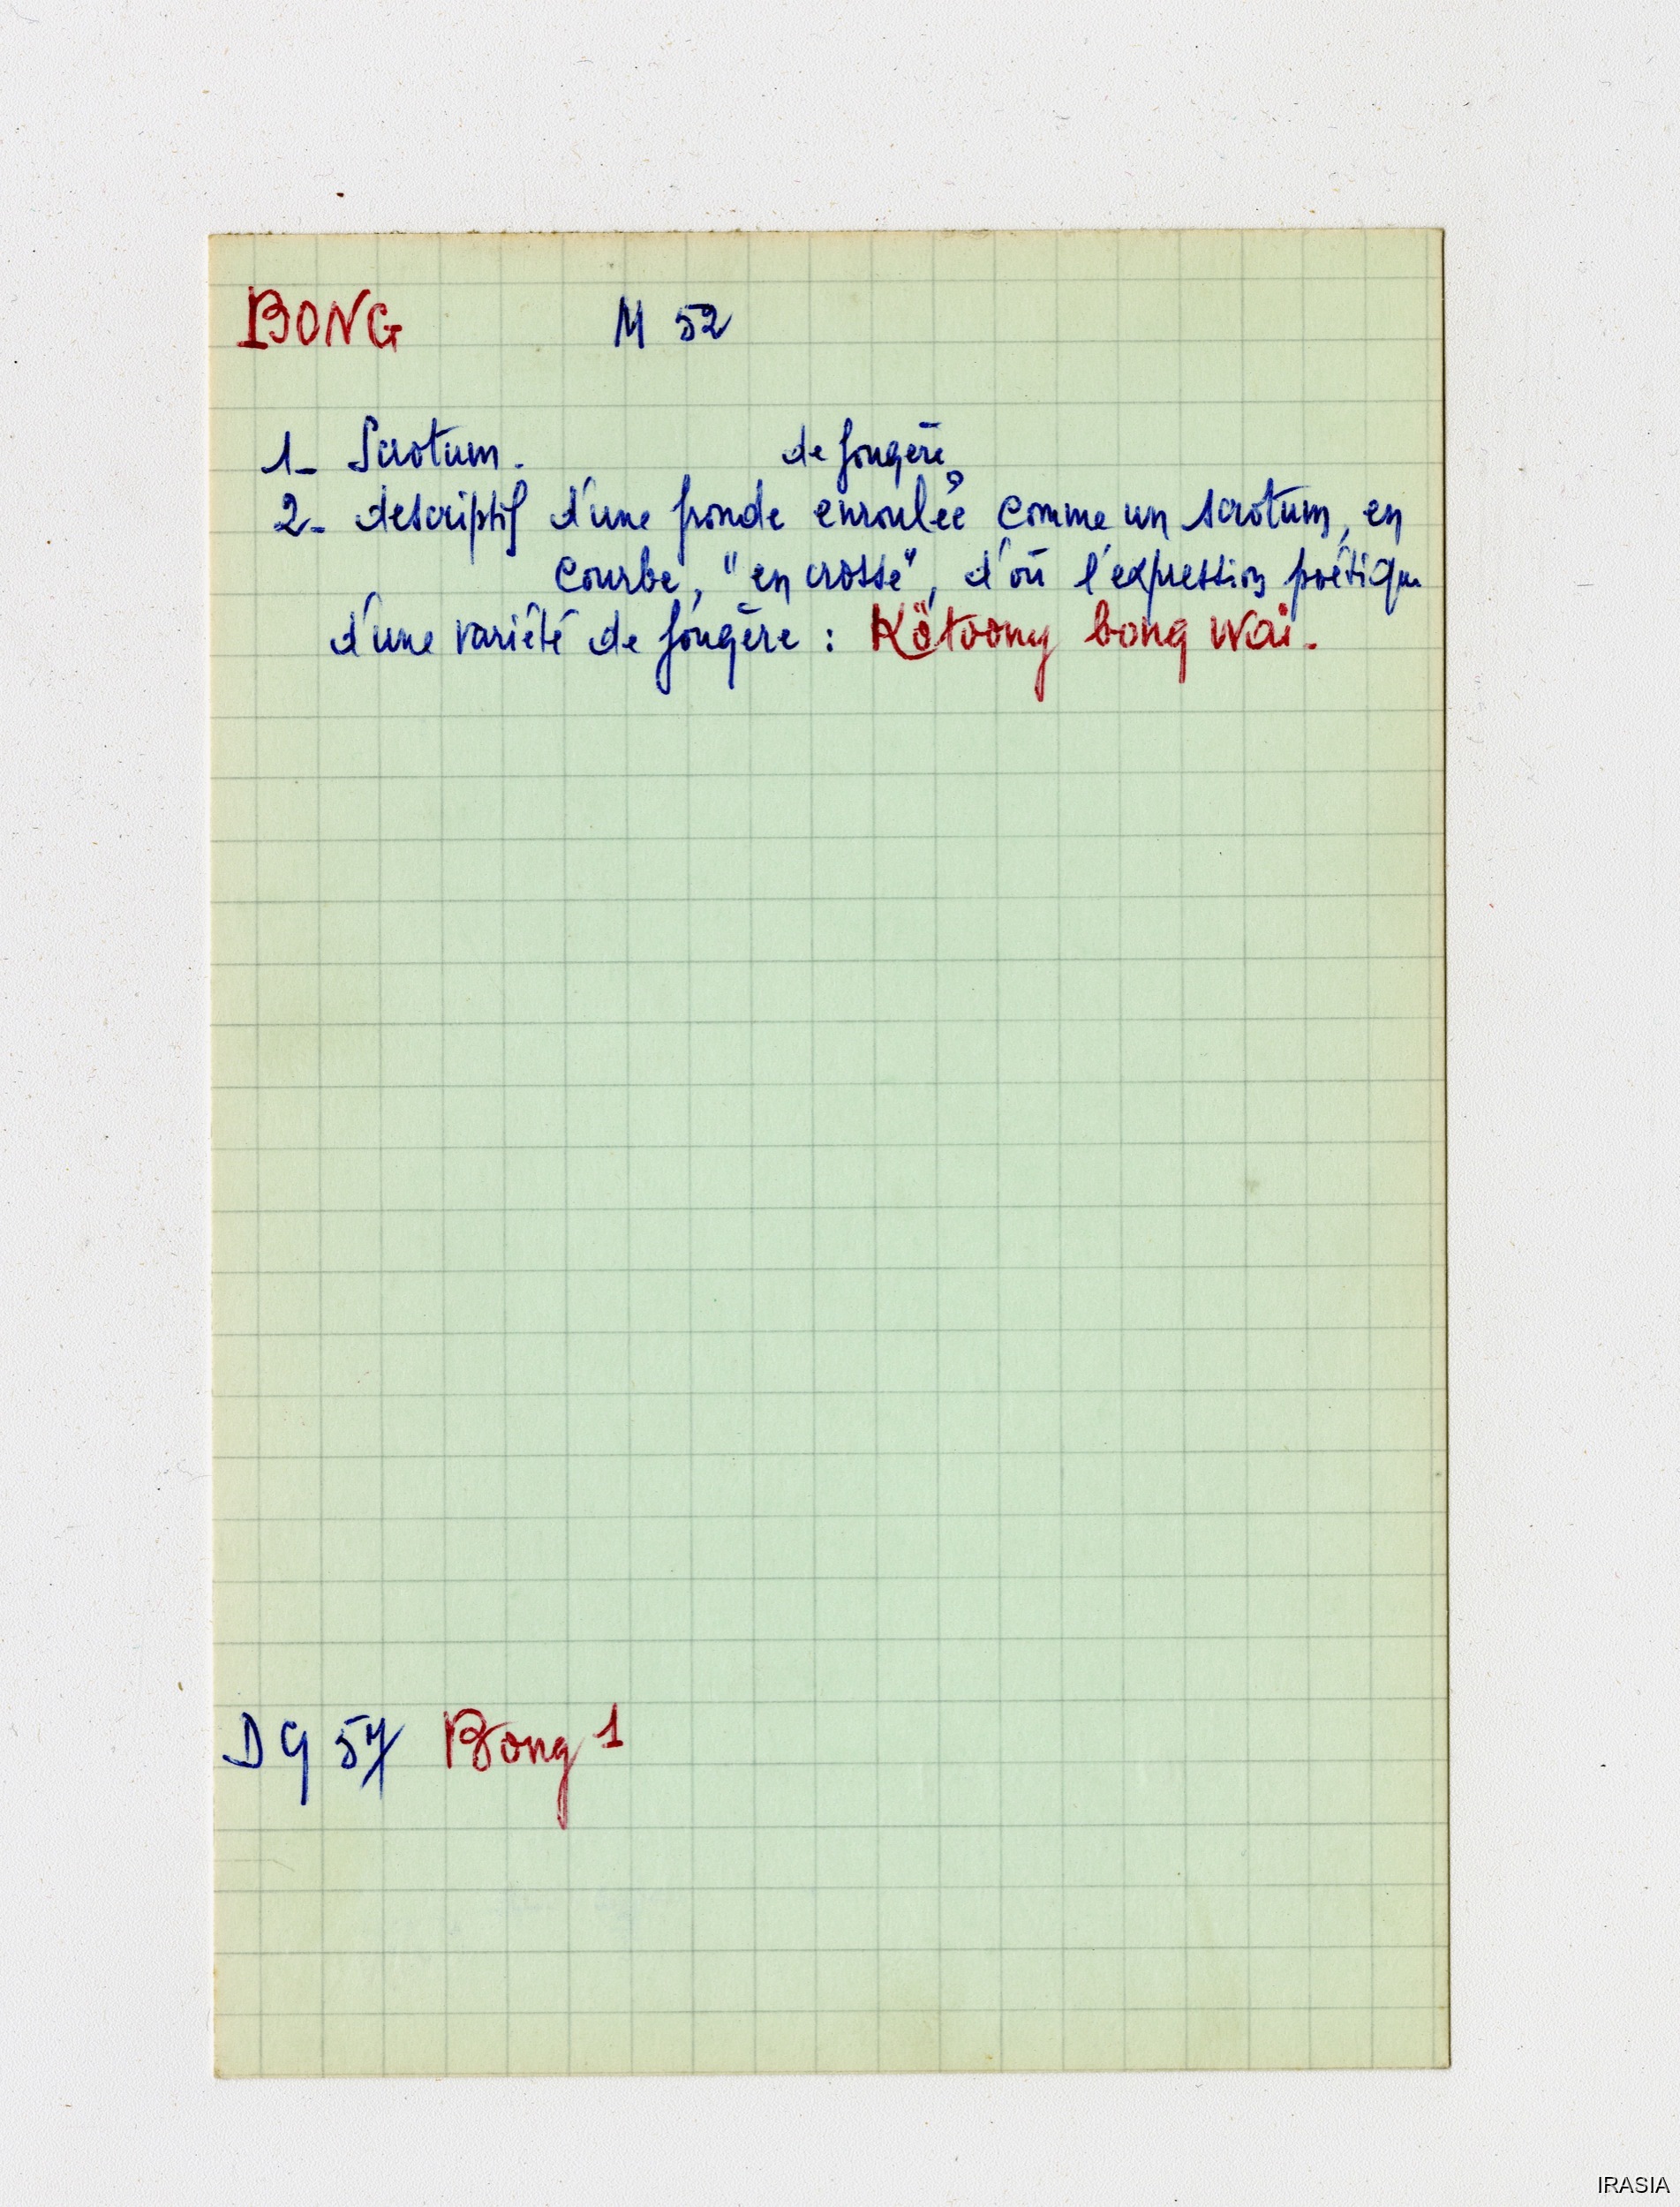 BONG M 52
1_ Scrotum.
de fougère
2_ descriptif d'une fronde enroulée comme un scrotum, en
courbe, "en crosse", d'où l'expression poétique
d'une variété de fougère : Kötoong bong wai.
DG 57 Bong 1
IRASIA